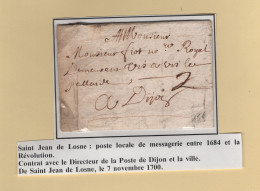 A Monsieur
Monsieur fiot no re Royal
Demeurant vis a vis les
2
a Dijon
Saint Jean de Losne : poste locale de messagerie entre 1684 et la
Révolution.
Contrat avec le Directeur de la Poste de Dijon et la ville.
De Saint Jean de Losne, le 7 novembre 1700.